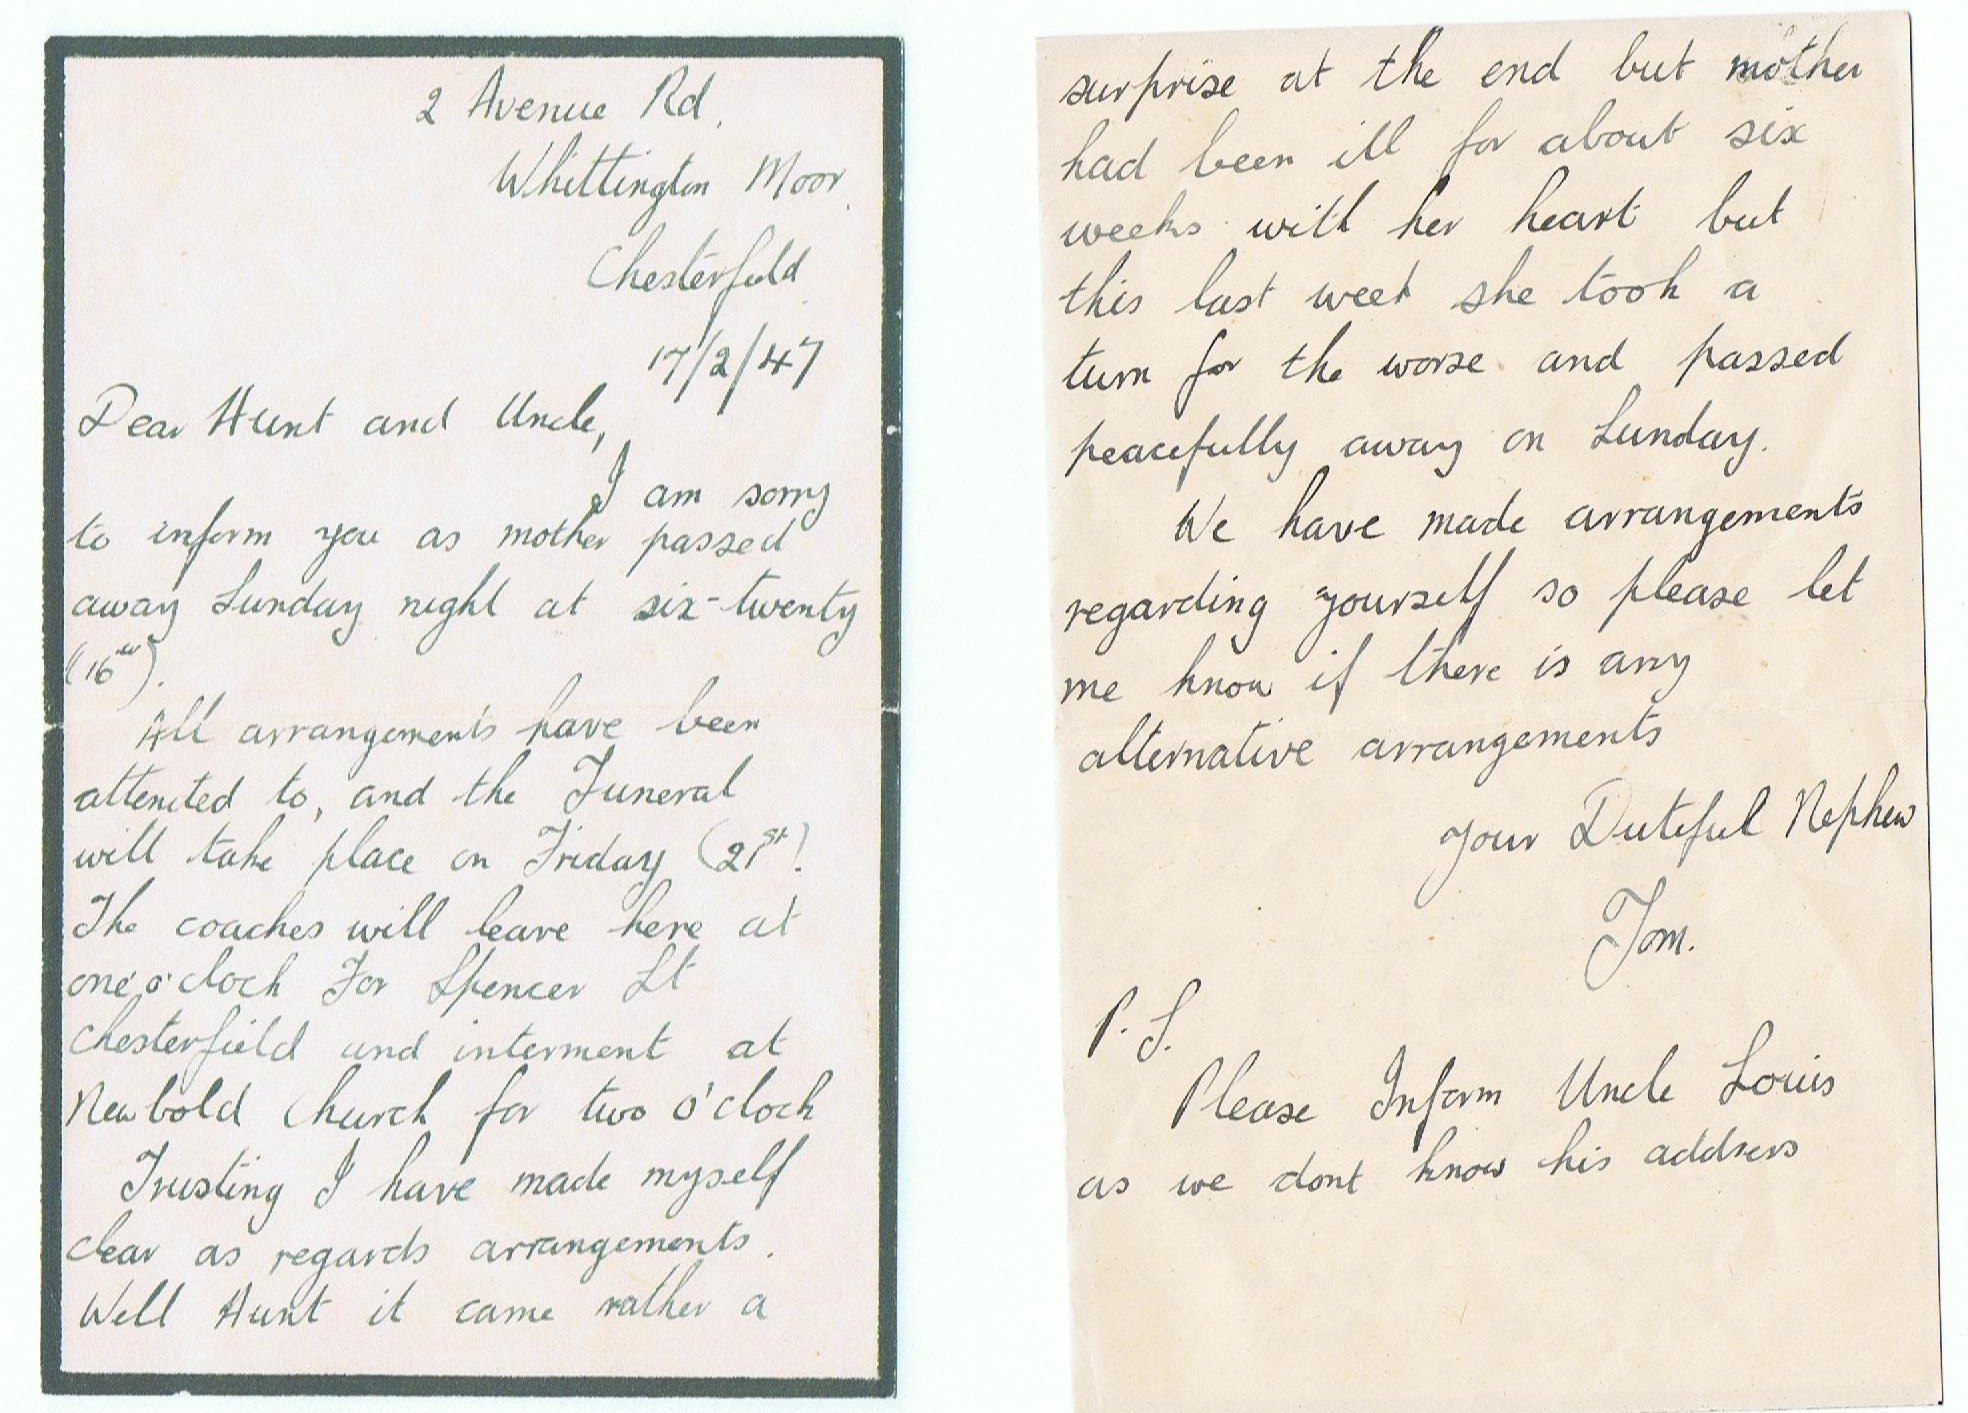 2 Avenue Rd,
Whittington Moor.
Chesterfield
17/2/47
Dear Aunt and Uncle,
I am sorry
to inform you as mother passed
away Sunday night at six-twenty
(16th).
All arrangements have been
attented to, and the Funeral
will take place on Friday (21st).
The coaches will leave here at
one o'clock For Spencer St
Chesterfield and interment at
Newbold Church for two o'clock
Trusting I have made myself
clear as regards arrangements.
Well Aunt it came rather a
surprise at the end but mother
had been ill for about six
weeks with her heart but
this last week she took a
turn for the worse and passed
peacefully away on Sunday.
We have made arrangements
regarding yourself so please let
me know if there is any
alternative arrangements
Your Dutiful Nephew
Tom.
P.S.
Please Inform Uncle Louis
as we dont know his address